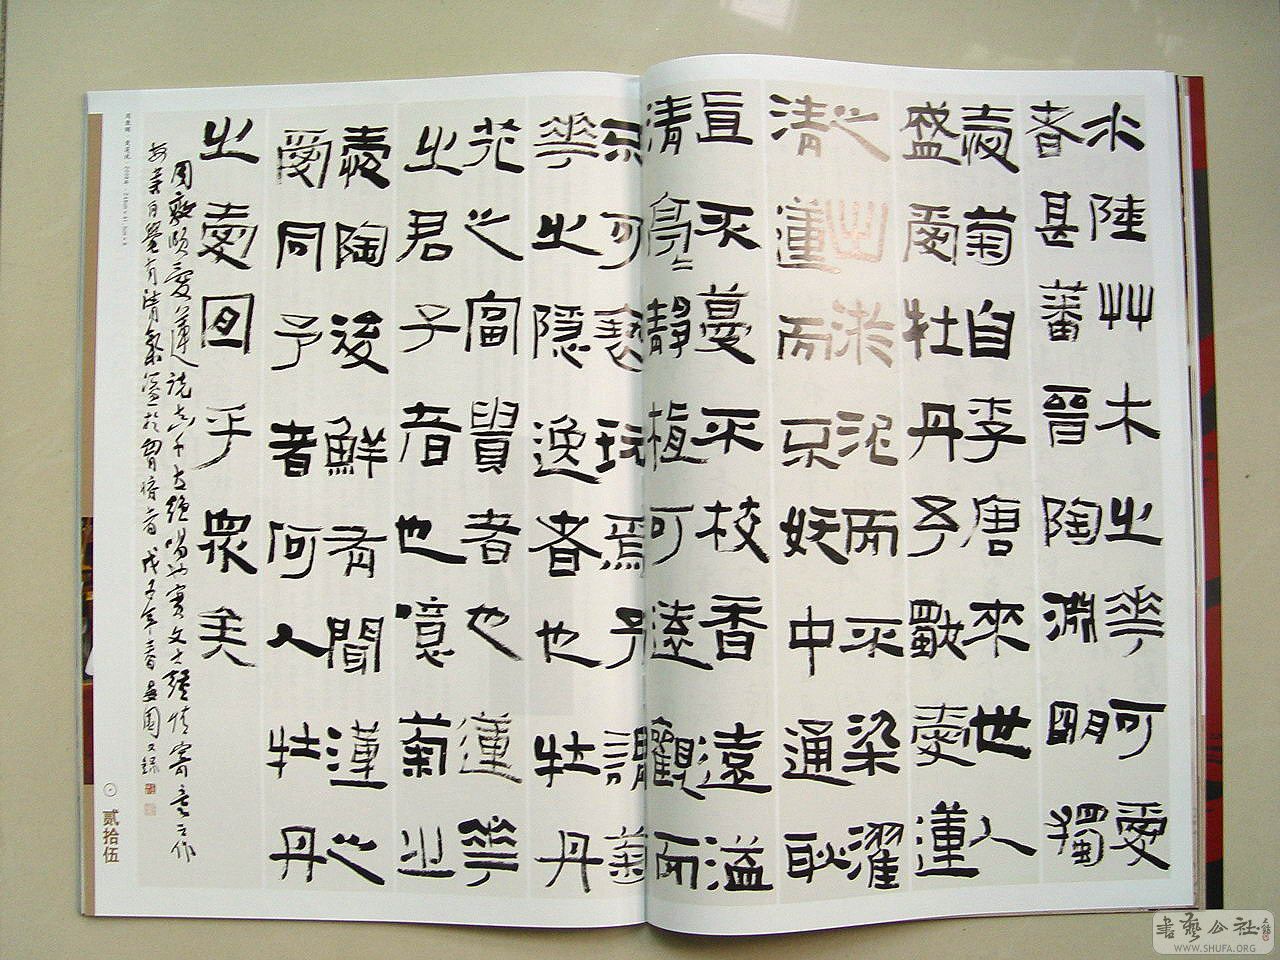 水陸艸木之華可愛
者甚蕃晉陶淵明獨
愛菊自李唐來世人
盛愛牡丹予歜愛蓮
之出淤泥而不染濯
清蓮而不妖中通
直不蔓不枝香遠溢
清亭二靜植可遠觀而
不可褻玩焉予謂菊
華之隱逸者也牡丹
花之富貴者也蓮華
之君子者也噫菊之
愛陶後鮮有聞蓮之
愛同予者何人牡丹
之愛宜乎眾矣
周敦頤愛蓮說千古絕唱實文士情寄意之作
自覺有清氣溢於胸者戊子年春又錄
貳拾伍
書藝公社
WWW.SHUFA.ORG